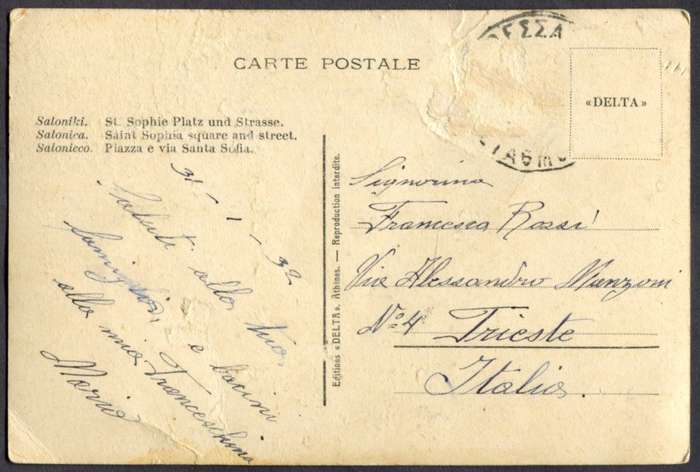 CARTE POSTALE
Saloniki. St. Sophie Platz und Strasse.
Salonica. Saint Sophia square and street.
Salonicco. Piazza e via Santa Sofia.
ΘΕΣΣΑ
«DELTA»
ΣΤΑΘΜΟ
Editions «DELTA», Athènes. — Reproduction interdite.
31 - 1 - 32
Saluti alla tua
famiglia, e bacini
alla mia Franceschina
Mario
Signorina
Francesca Rossi
Via Alessandro Manzoni
No 4 Trieste
Italia